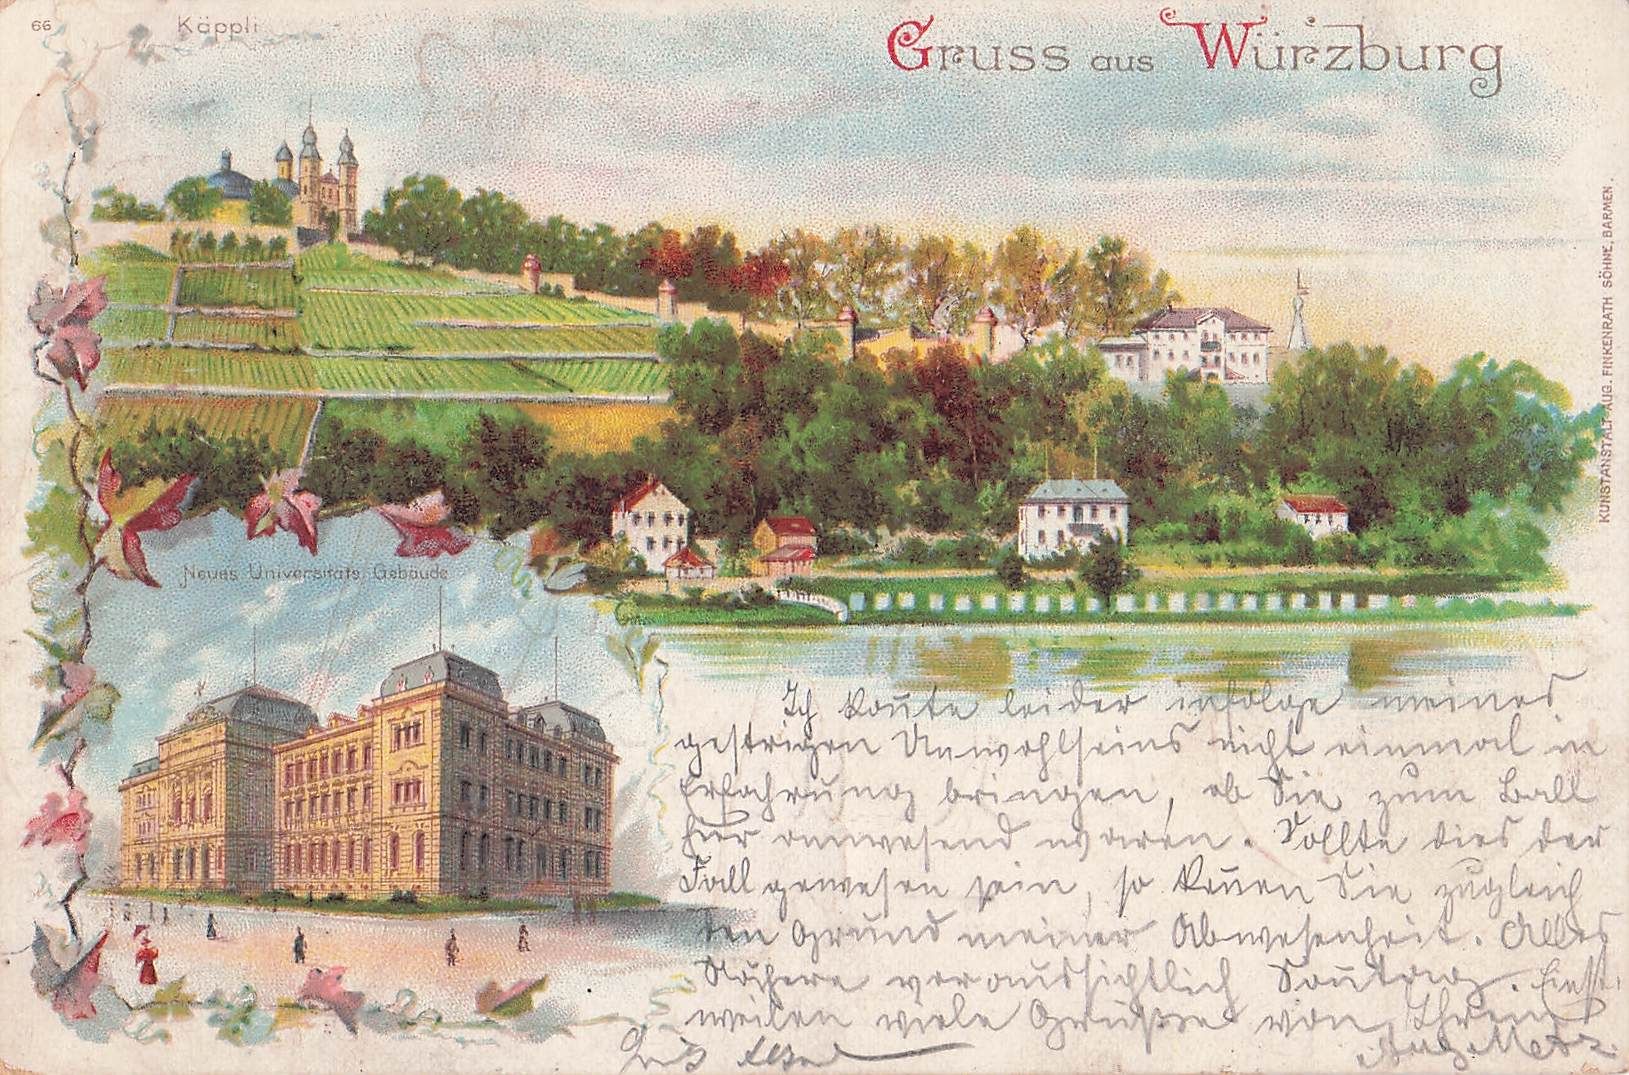 66
Käppli
Gruss aus Würzburg
KUNSTANSTALT AUG. FINKENRATH SÖHNE, BARMEN.
Neues Universitäts Gebäude
Ich konnte leider infolge meines
gestrigen Unwohlseins nicht einmal in
Erfahrung bringen, ob Sie zum Ball
hier anwesend waren. Sollte dies der
Fall gewesen sein, so kennen Sie zugleich
den Grund meiner Abwesenheit. Alles
Nähere voraussichtlich Sonntag. Einst-
weilen viele Grüsse von Ihrem
Aug. Metz.